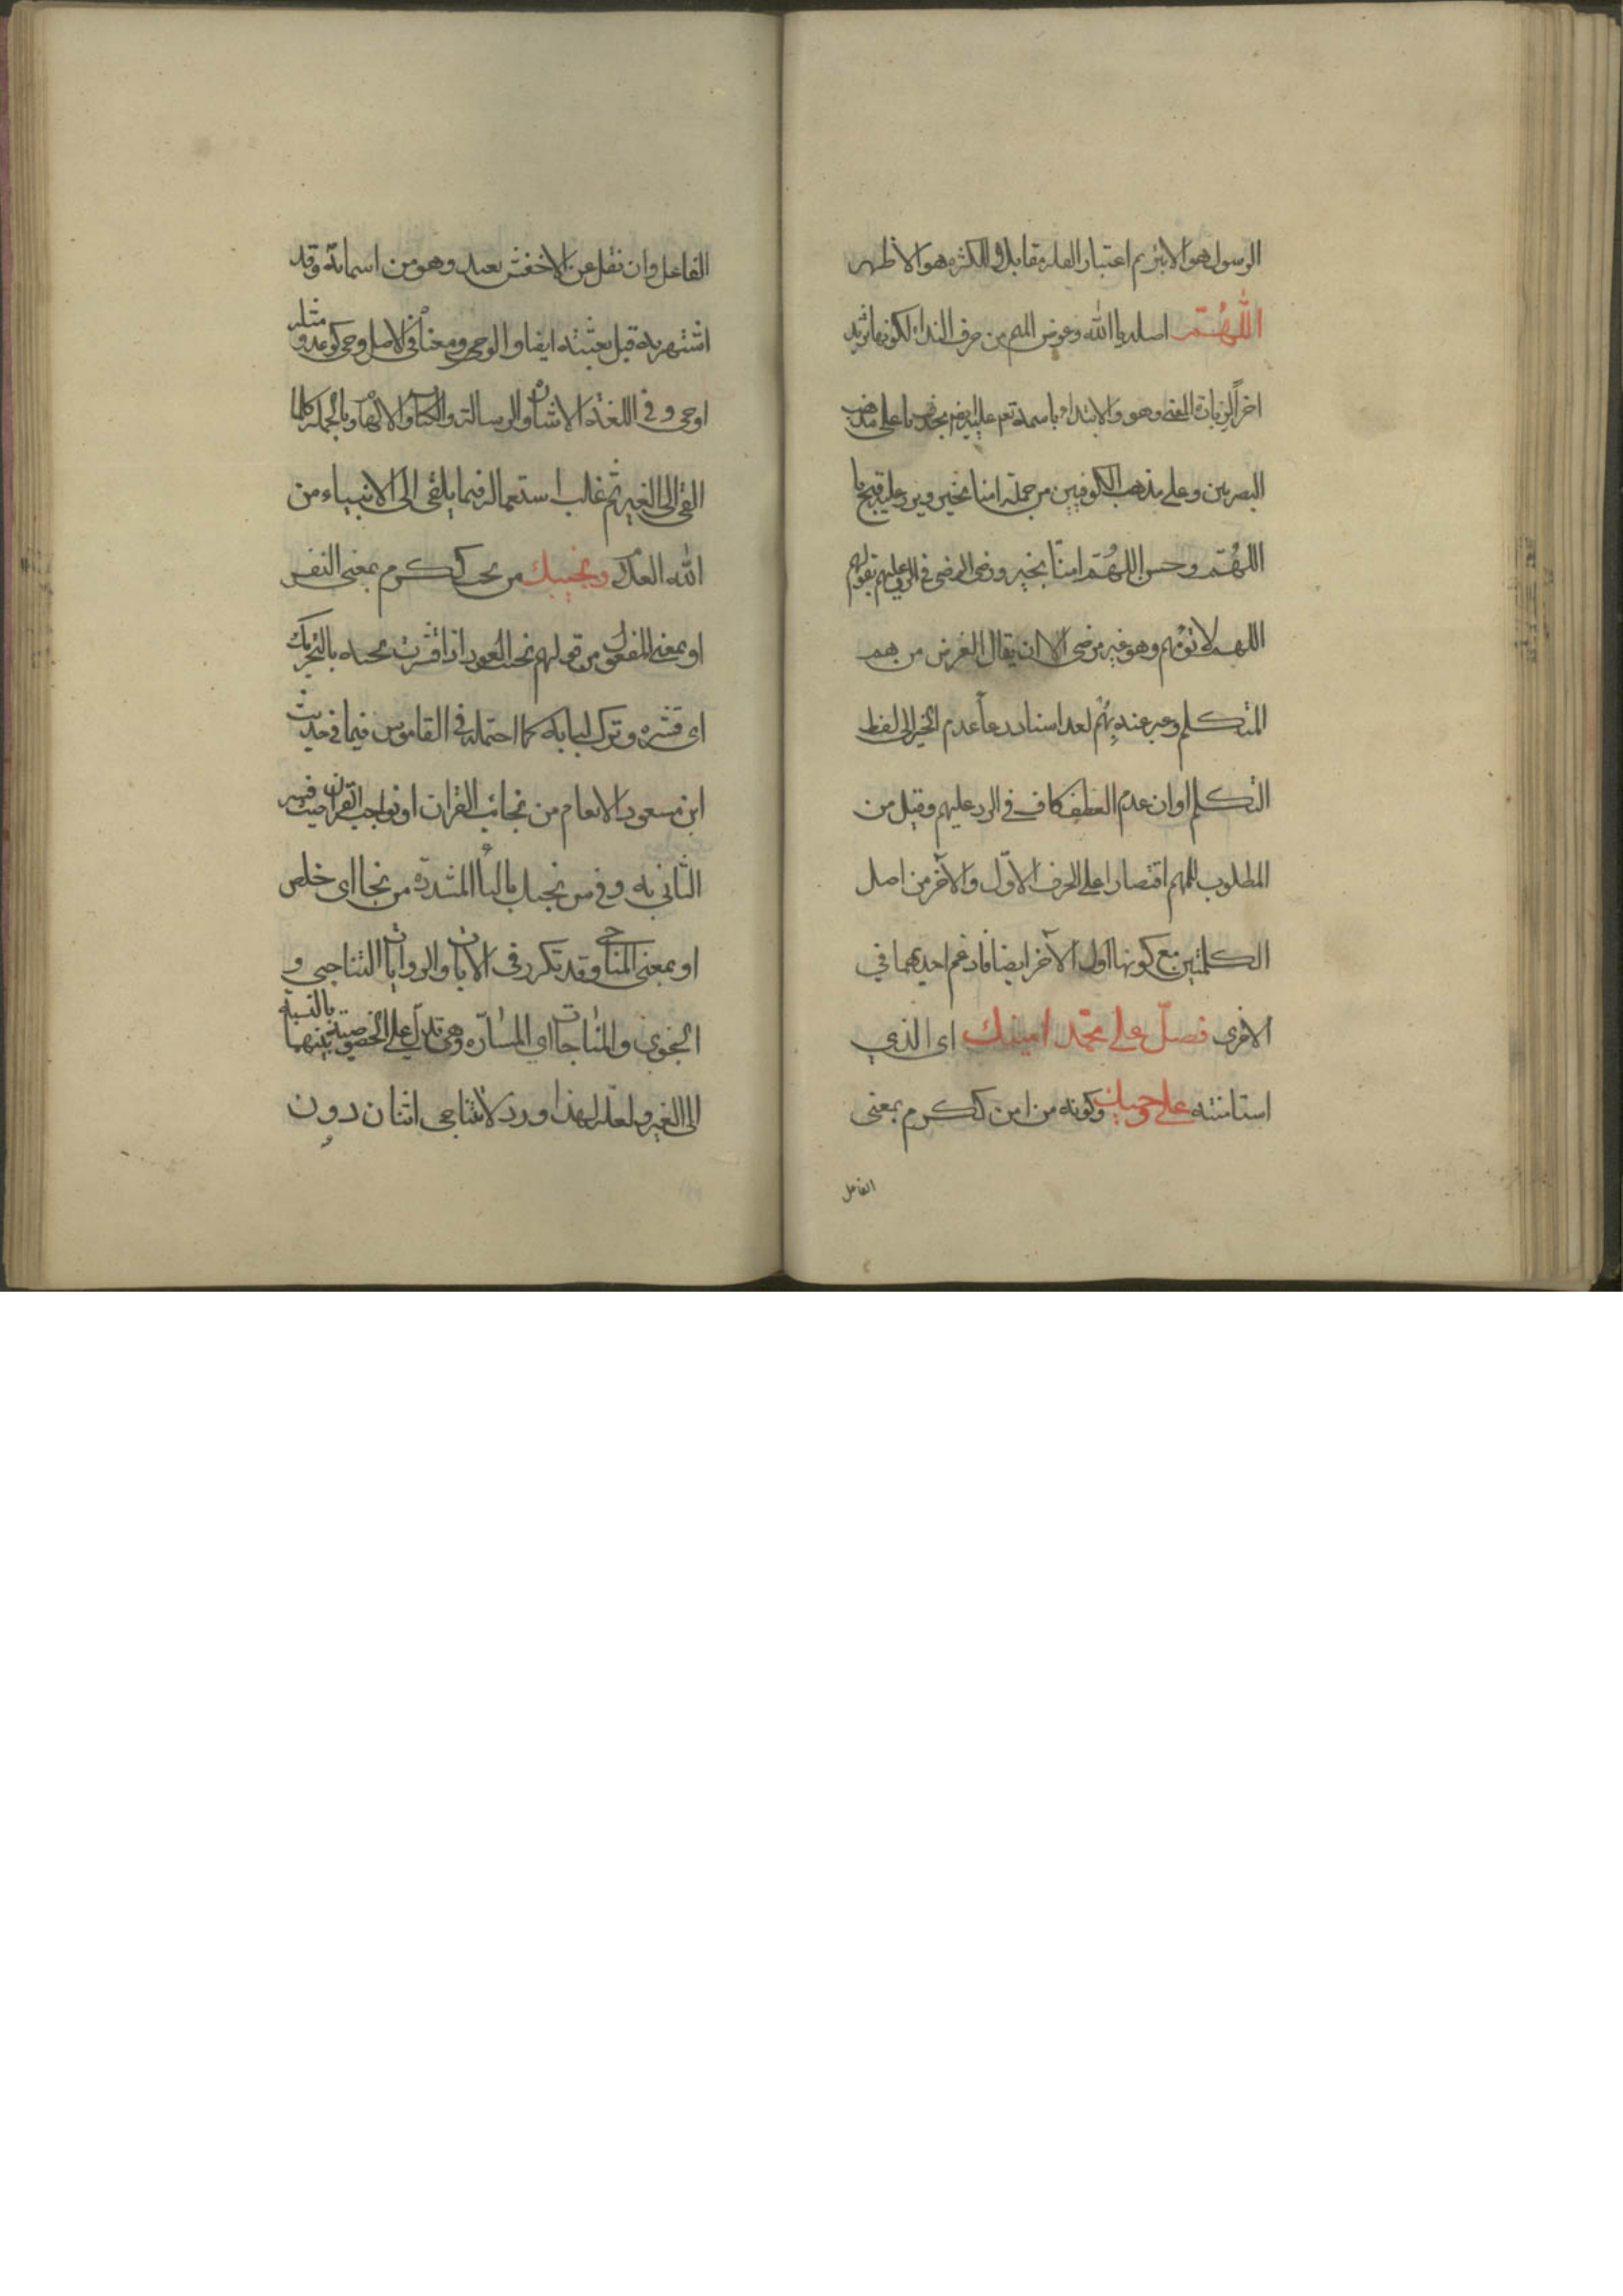 الرسول هو الابثرثم اعتبار القلة مقابل والكثره هو الاظهر
اللّٰهُمّ اصله يا الله وعوض الميم من حرف النداء لكونها تزيد
اخراً لزيادة المعنى وهو والابتداء باسمه تعم
البصريين وعلى مذهب الكوفيين من جملة امنا بخير ويرد عليه قبح يا
اللهُمّ وحسن اللهُمّ امنّا بخير ورضى الرضى في الرد عليهم بقولهم
اللهم لا تؤمهم وهو غير مرضى الا ان يقال الغرض من هم
المتكلم وعبر عنه بهُم لعد اسناد دعاء عدم الخير الى لفظ
التكلم او ان عدم العطف كاف في الرد عليهم وقيل من
المطلوب للمهم اقتصارا على الحرف الاوّل والآخر من اصل
الكلمتين مع كونها اول الآخر ايضا فادغم احديهما في
الاخرى فصلّ على محمّد امينك اى الذي
استامنته على وحيك وكونه من امن ككرم بمعنى
الفاعل
الفاعل وان نقل عن الاخفش بعيد وهو من اسمائه وقد
اشتهر به قبل بعثته ايضا والوحى ومعناه في الاصل وحى كوعد و مثله
اوحى و في اللغة الاشارة والرسالة والكتاب والالهام وبالجملة كلما
القى الى الغير ثم غلب استعماله فيما يلقى الى الانبياء من
الله العدل ونجيبك من نجب ككرم بمعنى النفيس
او بمعنى المفعول من قولهم نجب العود اذا قشرت نجبه بالتحريك
اى قشره وترك لبابه كما احتمله في القاموس فيما في حديث
ابن مسعود الانعام من نجائب القران او نواجب القران حيث فسر
الثاني به وفي س نجيك بالياء المشددة من نجا اى خلص
او بمعنى المناجى وقد تكرر في الايات والروايات التناجي و
النجوى والمناجات اي المسارّه وهى تدلّ على الخصوصية بينهما بالنسبة
الى الغير ولعلّه لهذا ورد لا يتناجى اثنان دون